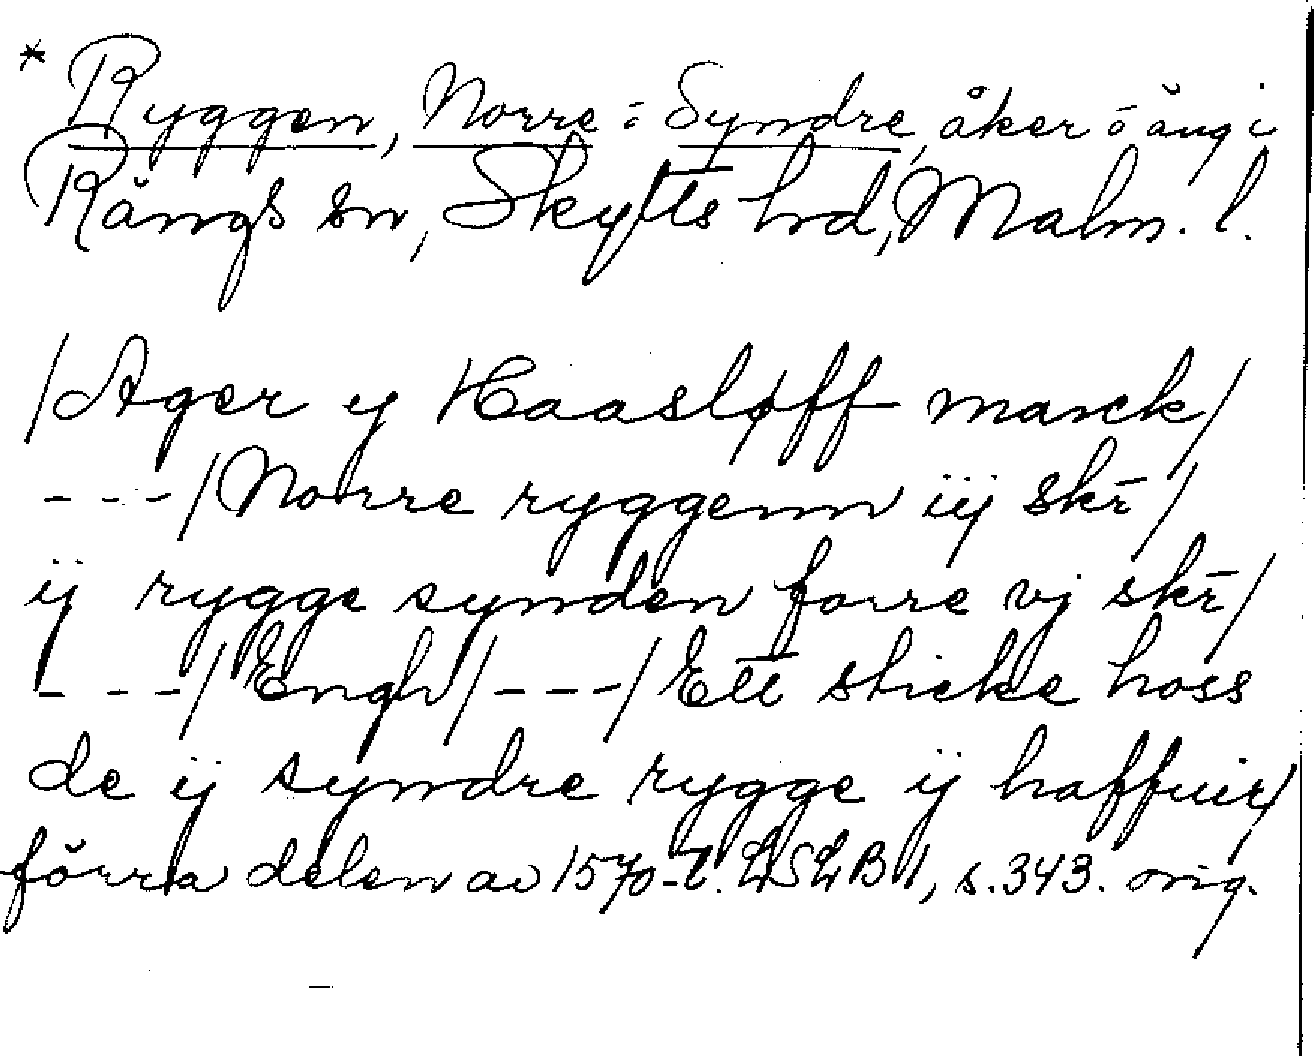 * Ryggen, Norre o Syndre, åker o äng i
Rängs sn, Skytts hd, Malm. l.
/Ager y Haasløff marck/
---/Norre ryggenn iij skr/
ij rygge synden forre vj skr/
---/Engh/---/Ett sticke hoss
de ij syndre rygge ij haffuir/
förra delen av 1570-t. LSLB 1, s. 343. orig.